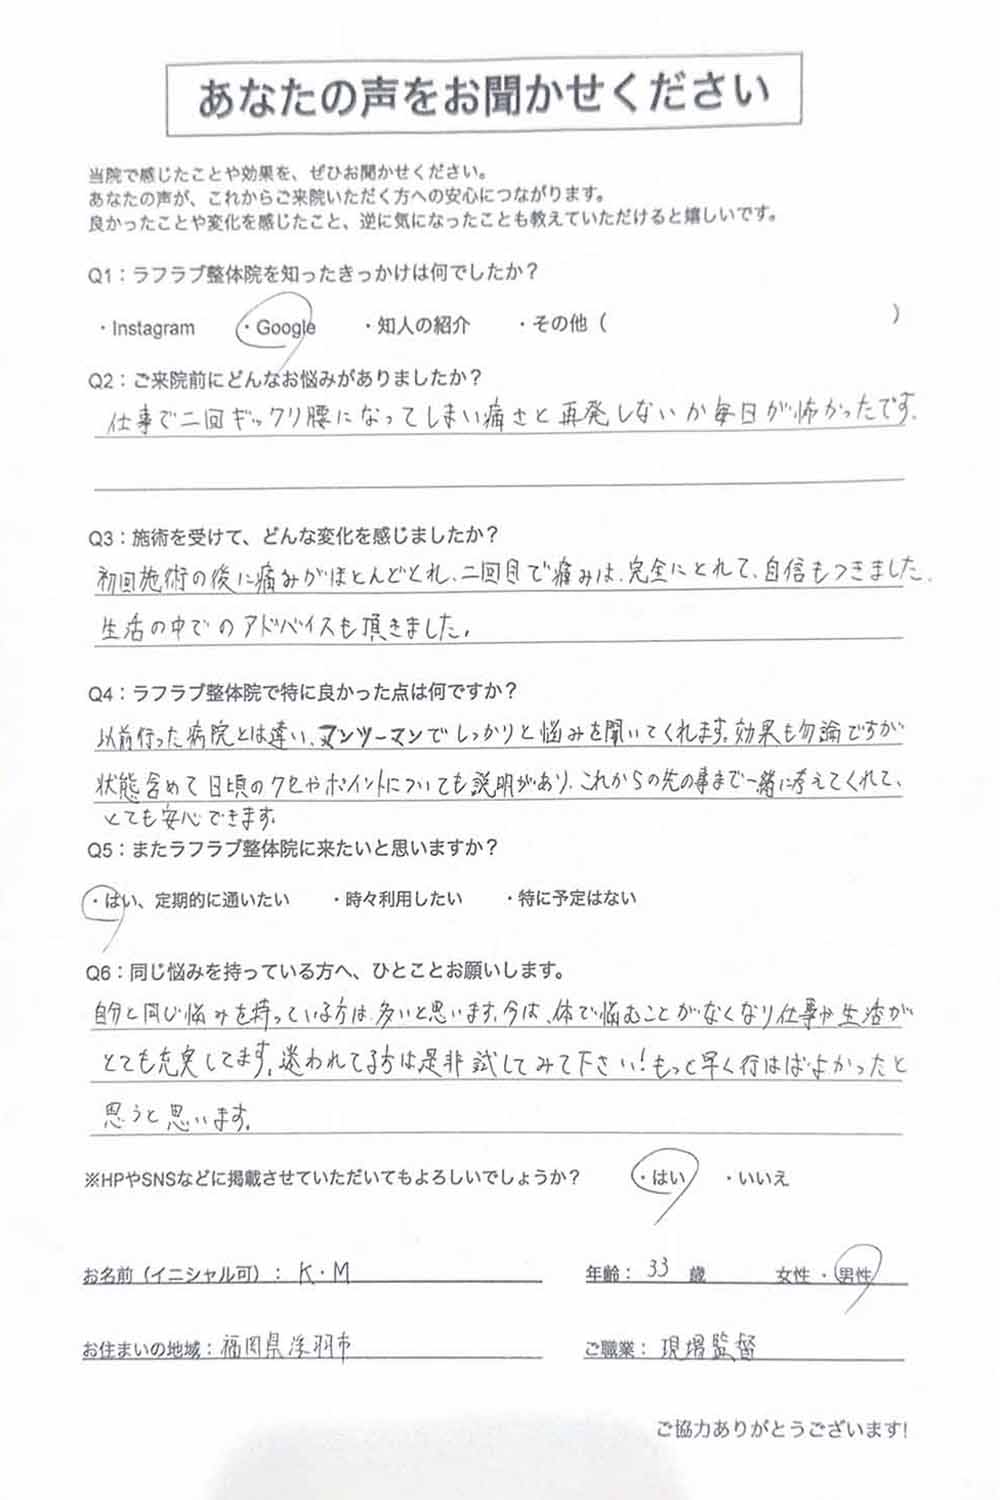 あなたの声をお聞かせください
当院で感じたことや効果を、ぜひお聞かせください。
あなたの声が、これからご来院いただく方への安心につながります。
良かったことや変化を感じたこと、逆に気になったことも教えていただけると嬉しいです。
Q1：ラフラブ整体院を知ったきっかけは何でしたか？
・Instagram ・Google ・知人の紹介 ・その他（ ）
Q2：ご来院前にどんなお悩みがありましたか？
仕事で二回ギックリ腰になってしまい痛さと再発しないか毎日が怖かったです。
Q3：施術を受けて、どんな変化を感じましたか？
初回施術の後に痛みがほとんどとれ、二回目で痛みは、完全にとれて、自信もつきました。
生活の中でのアドバイスも頂きました。
Q4：ラフラブ整体院で特に良かった点は何ですか？
以前行った病院とは違い、マンツーマンでしっかりと悩みを聞いてくれます。効果も勿論ですが
状態含めて日頃のクセやポイントについても説明があり、これからの先の事まで一緒に考えてくれて、
とても安心できます。
Q5：またラフラブ整体院に来たいと思いますか？
・はい、定期的に通いたい ・時々利用したい ・特に予定はない
Q6：同じ悩みを持っている方へ、ひとことお願いします。
自分と同じ悩みを持っている方は、多いと思います。今は、体で悩むことがなくなり仕事や生活が
とても充実してます。迷われてる方は是非試してみて下さい！もっと早く行けばよかったと
思うと思います。
※HPやSNSなどに掲載させていただいてもよろしいでしょうか？ ・はい ・いいえ
お名前（イニシャル可）： K・M 年齢： 33 歳 女性 ・ 男性
お住まいの地域：福岡県浮羽市 ご職業： 現場監督
ご協力ありがとうございます！